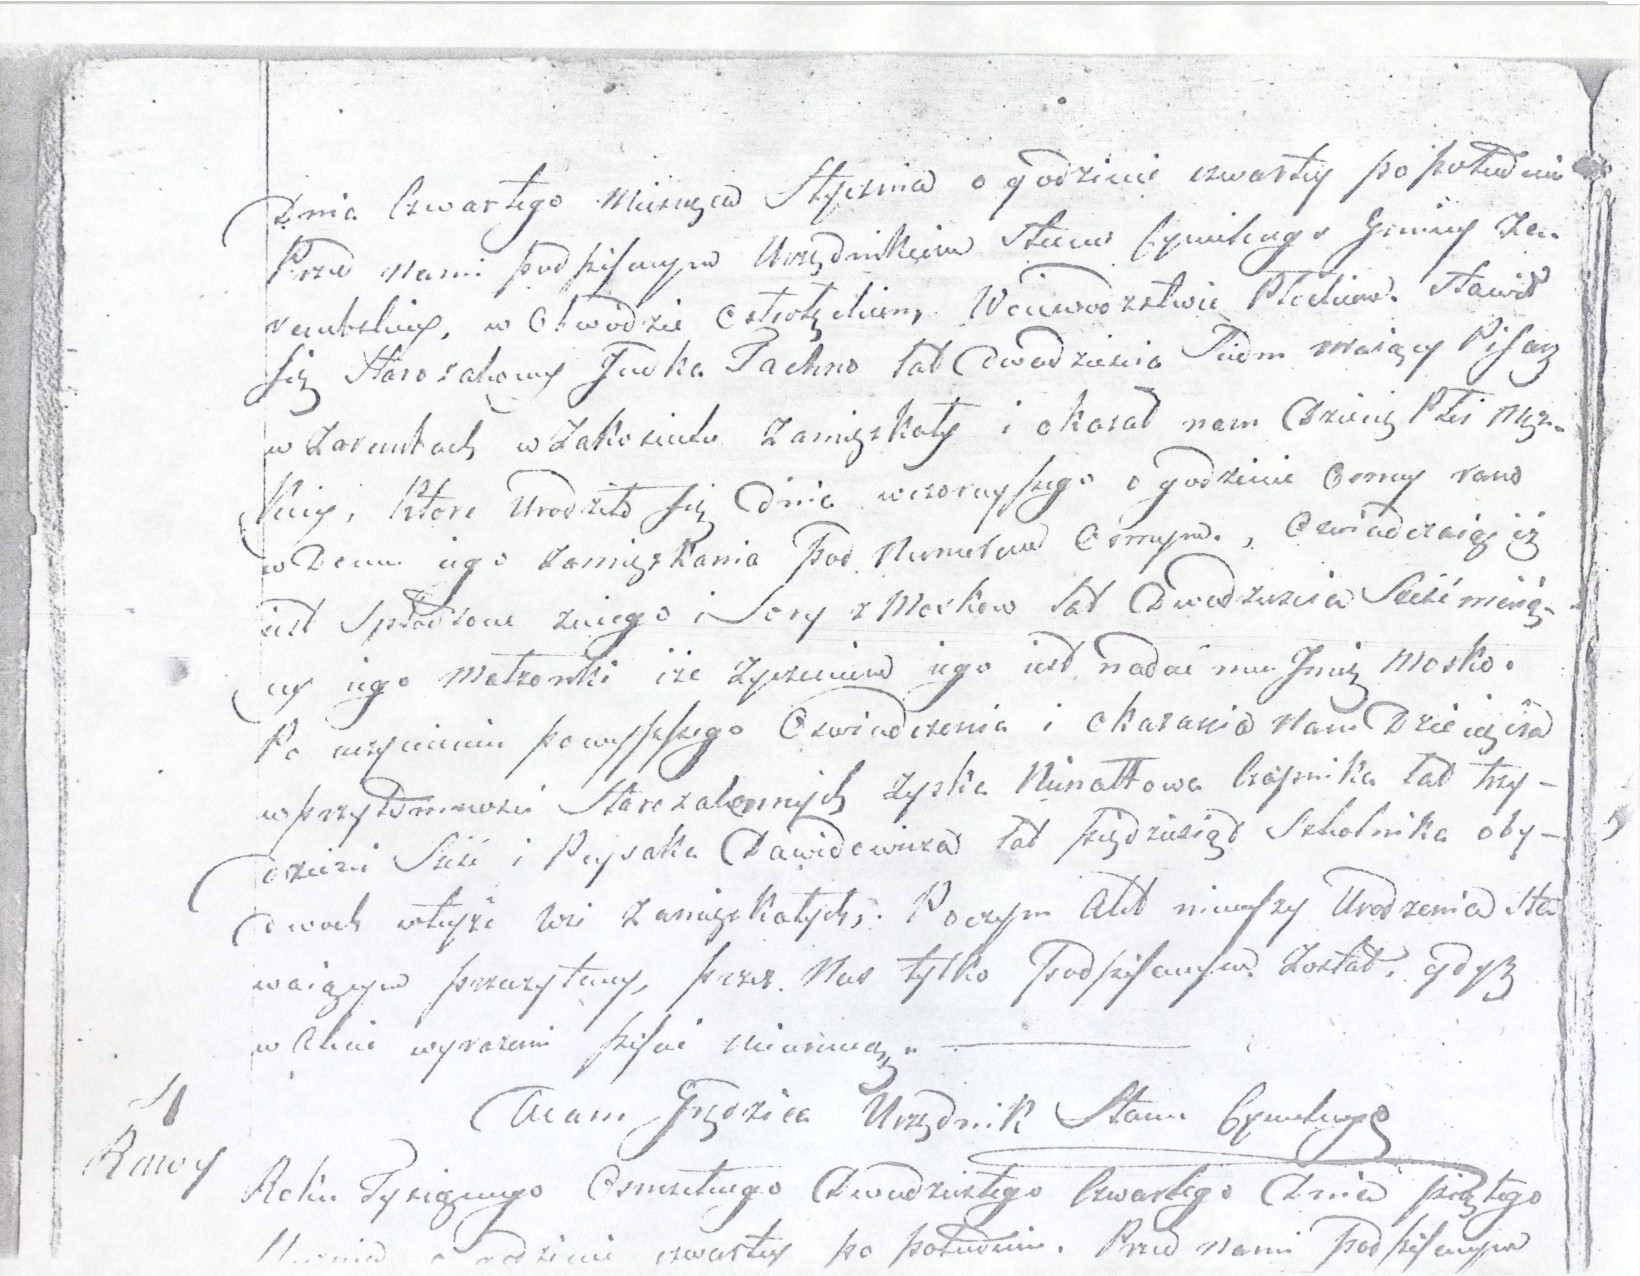 Dnia Czwartego Miesiąca Stycznia o godzinie czwartey po południu
Przed nami podpisanym Urzędnikiem Stanu Cywilnego Gminy Za-
rembskiey, w Obwodzie Ostrołęckiem, Woiewodztwie Płockiem. Stawił
się Starozakonny Jcka Pachno lat dwadzieścia siedm maiący Pisarz
w Zarembach w Zakosciele Zamięszkały i okazał nam Dziecię Płci Męz-
kiey, które Urodziło się dnia wczorayszego o godzinie osmey rano
w Domu iego zamięszkania pod Numerem Osmym, Oswiadczaiąc iż
iest spłodzone z niego i Sory z Mosków lat Dwadzieścia Sześć maią-
cey iego Małżonki i że życzeniem iego iest nadać mu Jmię Mosko.
Po uczynieniu powyższego Oswiadczenia i okazania Nam Dziecięcia
w przytomności Starozakonnych Zyska Czapnika lat trzy-
dzieści Sześć i Peysaka Dawidowicza lat pięćdziesiąt Szkolnika oby-
dwoch w teyże Wsi Zamięszkałych; Poczym Akt ninieyszy Urodzenia sta
waiącym przeczytany, przez Nas tylko Podpisanym Został, gdyż
w Akcie wyrażeni pisać nieumieią.
Adam Grędzica Urzędnik Stanu Cywilnego
4
Roku Tysiącznego Osmsetnego Dwudziestego Czwartego Dnia piątego
Stycznia o godzinie czwartey po południu. Przed nami podpisanym